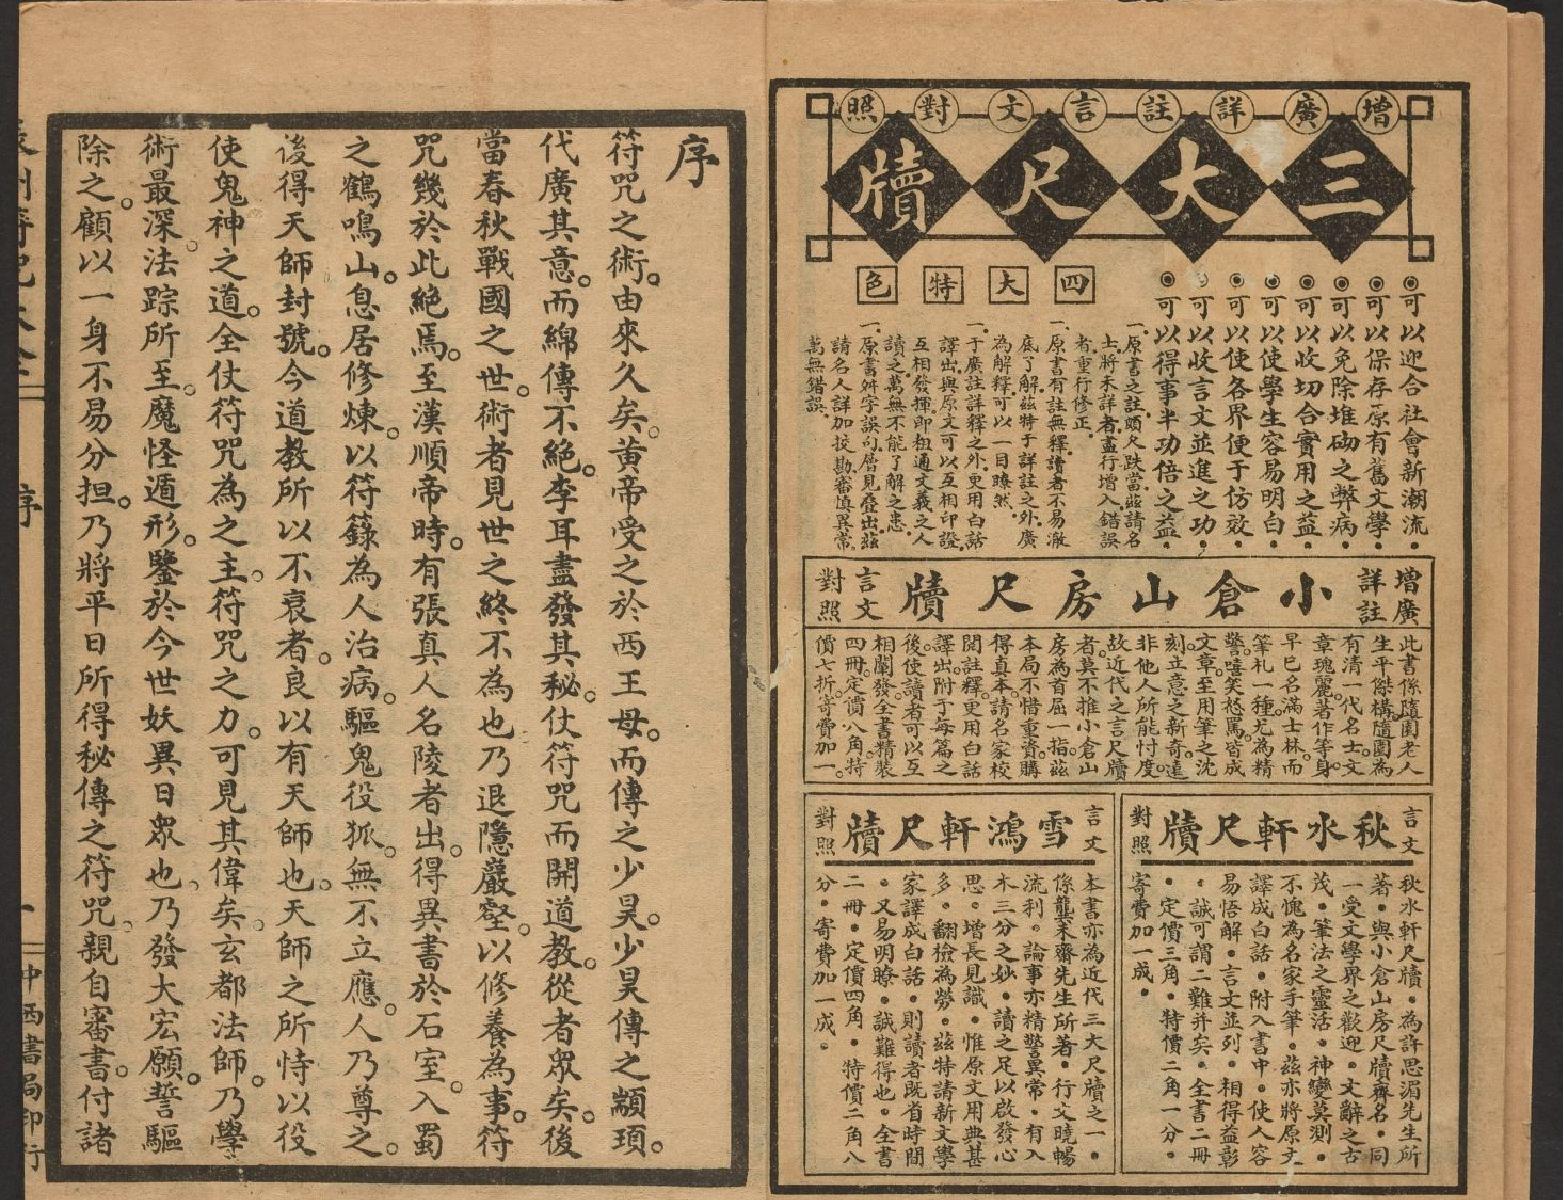 增廣詳註言文對照
三大尺牘
◉可以迎合社會新潮流●
◉可以保存原有舊文學●
◉可以免除堆砌之弊病●
◉可以收切合實用之益●
◉可以使學生容易明白●
◉可以使各界便于仿效●
◉可以收言文並進之功●
◉可以得事半功倍之益●
四大特色
一、原書之註、頗欠跌當、茲請名
士、將未詳者、盡行增入、錯誤
者、重行修正。
一、原書有註無釋、讀者不易澈
底了解、茲特于詳註之外、廣
為解釋、可以一目瞭然。
一、于廣註詳釋之外、更用白話
譯出、與原文可以互相印證、
互相發揮、卽粗通文義之人
讀之、萬無不能了解之患。
一、原書舛字誤句、層見疊出、茲
請名人詳加校勘、審慎異常、
萬無錯誤。
增廣詳註
小倉山房尺牘
言文對照
此書係隨園老人
生平傑構、隨園為
有清一代名士、文
章瑰麗、著作等身、
早已名滿士林、而
筆札一種、尤為精
警、嘻笑怒罵、皆成
文章、至用筆之沈
刻、立意之新奇、遠
非他人所能忖度、
故近代之言尺牘
者、莫不推小倉山
房為首屈一指、茲
本局不惜重資、購
得真本、請名家校
閱註釋、更用白話
譯出、附于每篇之
後、使讀者可以互
相闡發、全書精裝
四冊、定價八角、特
價七折、寄費加一。
言文對照
秋水軒尺牘
秋水軒尺牘●為許思湄先生所
著●與小倉山房尺牘齊名●同
一受文學界之歡迎●文辭之古
茂●筆法之靈活●神變莫測●
不愧為名家手筆●茲亦將原文
譯成白話●附入書中●使人容
易悟解●言文並列●相得益彰
●誠可謂二難并矣●全書二冊
●定價三角●特價二角一分●
寄費加一成●
言文對照
雪鴻軒尺牘
本書亦為近代三大尺牘之一●
係龔未齋先生所著●行文曉暢
流利。論事亦精警異常●有入
木三分之妙●讀之足以啟發心
思●增長見識●惟原文用典甚
多●翻檢為勞●茲特請新文學
家譯成白話●則讀者既省時間
●又易明瞭●誠難得也●全書
二冊●定價四角●特價二角八
分●寄費加一成●
序
符咒之術。由來久矣。黃帝受之於西王母。而傳之少昊。少昊傳之顓頊。
代廣其意。而綿傳不絕。李耳盡發其秘。仗符咒而開道教。從者眾矣。後
當春秋戰國之世。術者見世之終不為也乃退隱巖壑。以修養為事。符
咒幾於此絕焉。至漢順帝時。有張真人名陵者出。得異書於石室。入蜀
之鶴鳴山。息居修煉。以符籙為人治病。驅鬼役狐。無不立應。人乃尊之。
後得天師封號。今道教所以不衰者。良以有天師也。天師之所恃以役
使鬼神之道。全仗符咒為之主。符咒之力。可見其偉矣。玄都法師。乃學
術最深。法踪所至。魔怪遁形。鑒於今世妖異日眾也。乃發大宏願。誓驅
除之。顧以一身不易分担。乃將平日所得秘傳之符咒。親自審書。付諸
序
一
中西書局印行